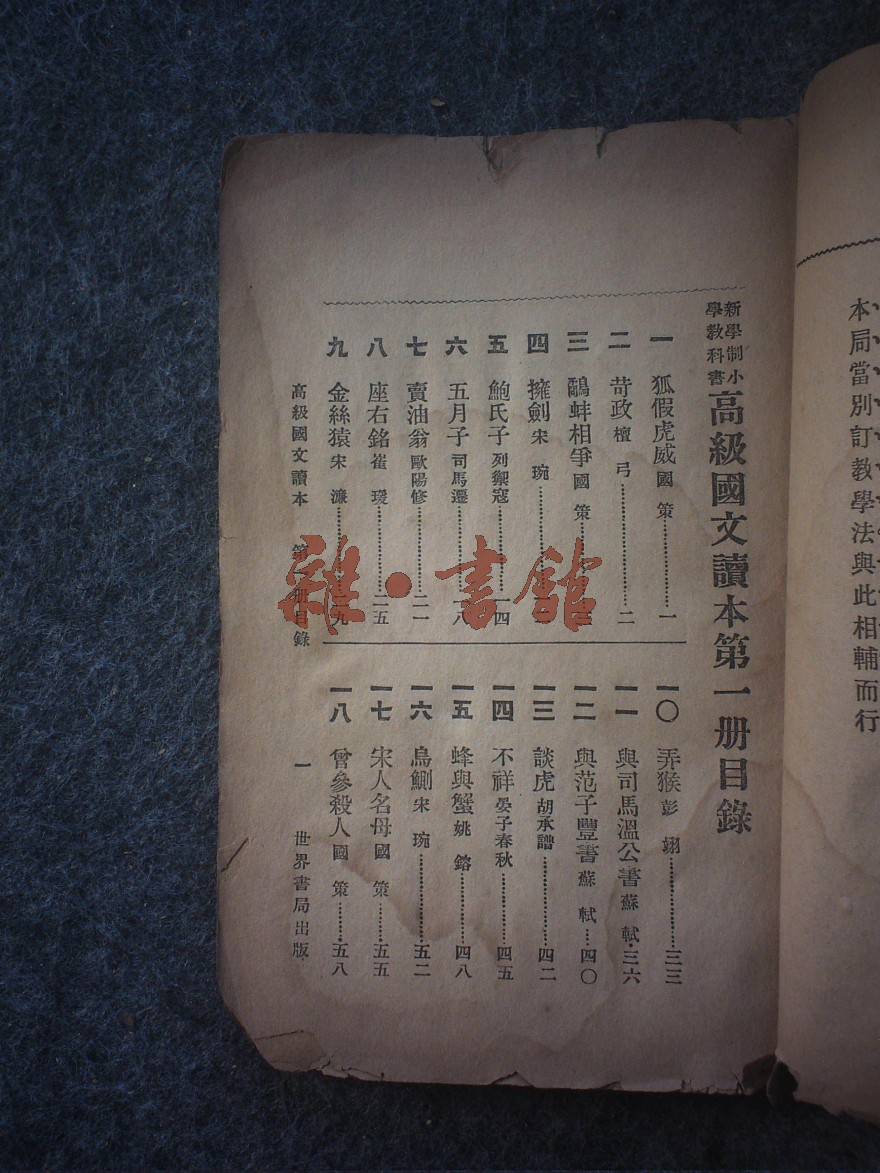 本局當別訂教學法與此相輔而行
新學制小學教科書高級國文讀本第一册目錄
一 狐假虎威 國策………一
二 苛政 檀弓………二
三 鷸蚌相爭 國策………
四 擁劍 宋琬………
五 鮑氏子 列禦寇………一四
六 五月子 司馬遷………一八
七 賣油翁 歐陽修………二一
八 座右銘 崔瑗………二五
九 金絲猿 宋濂………二九
一〇 弄猴 彭翊………三三
一一 與司馬溫公書 蘇軾…三六
一二 與范子豐書 蘇軾…四〇
一三 談虎 胡承譜………四二
一四 不祥 晏子春秋………四五
一五 蜂與蟹 姚鎔………四八
一六 烏鰂 宋琬………五二
一七 宋人名母 國策………五五
一八 曾參殺人 國策………五八
高級國文讀本 第一册目錄 一 世界書局出版
雜·書館